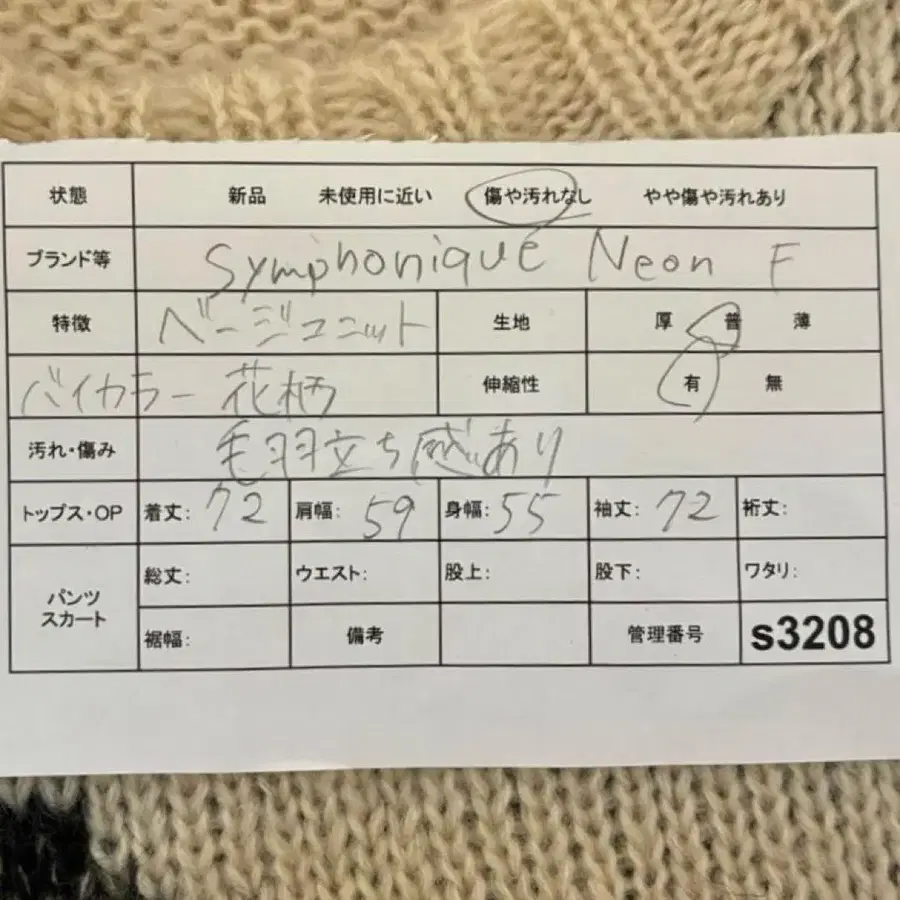 状態 新品 未使用に近い 傷や汚れなし やや傷や汚れあり
ブランド等 Symphonique Neon F
特徴 ベージュニット 生地 厚 普 薄
バイカラー 花柄 伸縮性 有 無
汚れ・傷み 毛羽立ち感あり
トップス・OP 着丈: 72 肩幅: 59 身幅: 55 袖丈: 72 裄丈:
パンツ スカート 総丈: ウエスト: 股上: 股下: ワタリ:
裾幅: 備考 管理番号 s3208